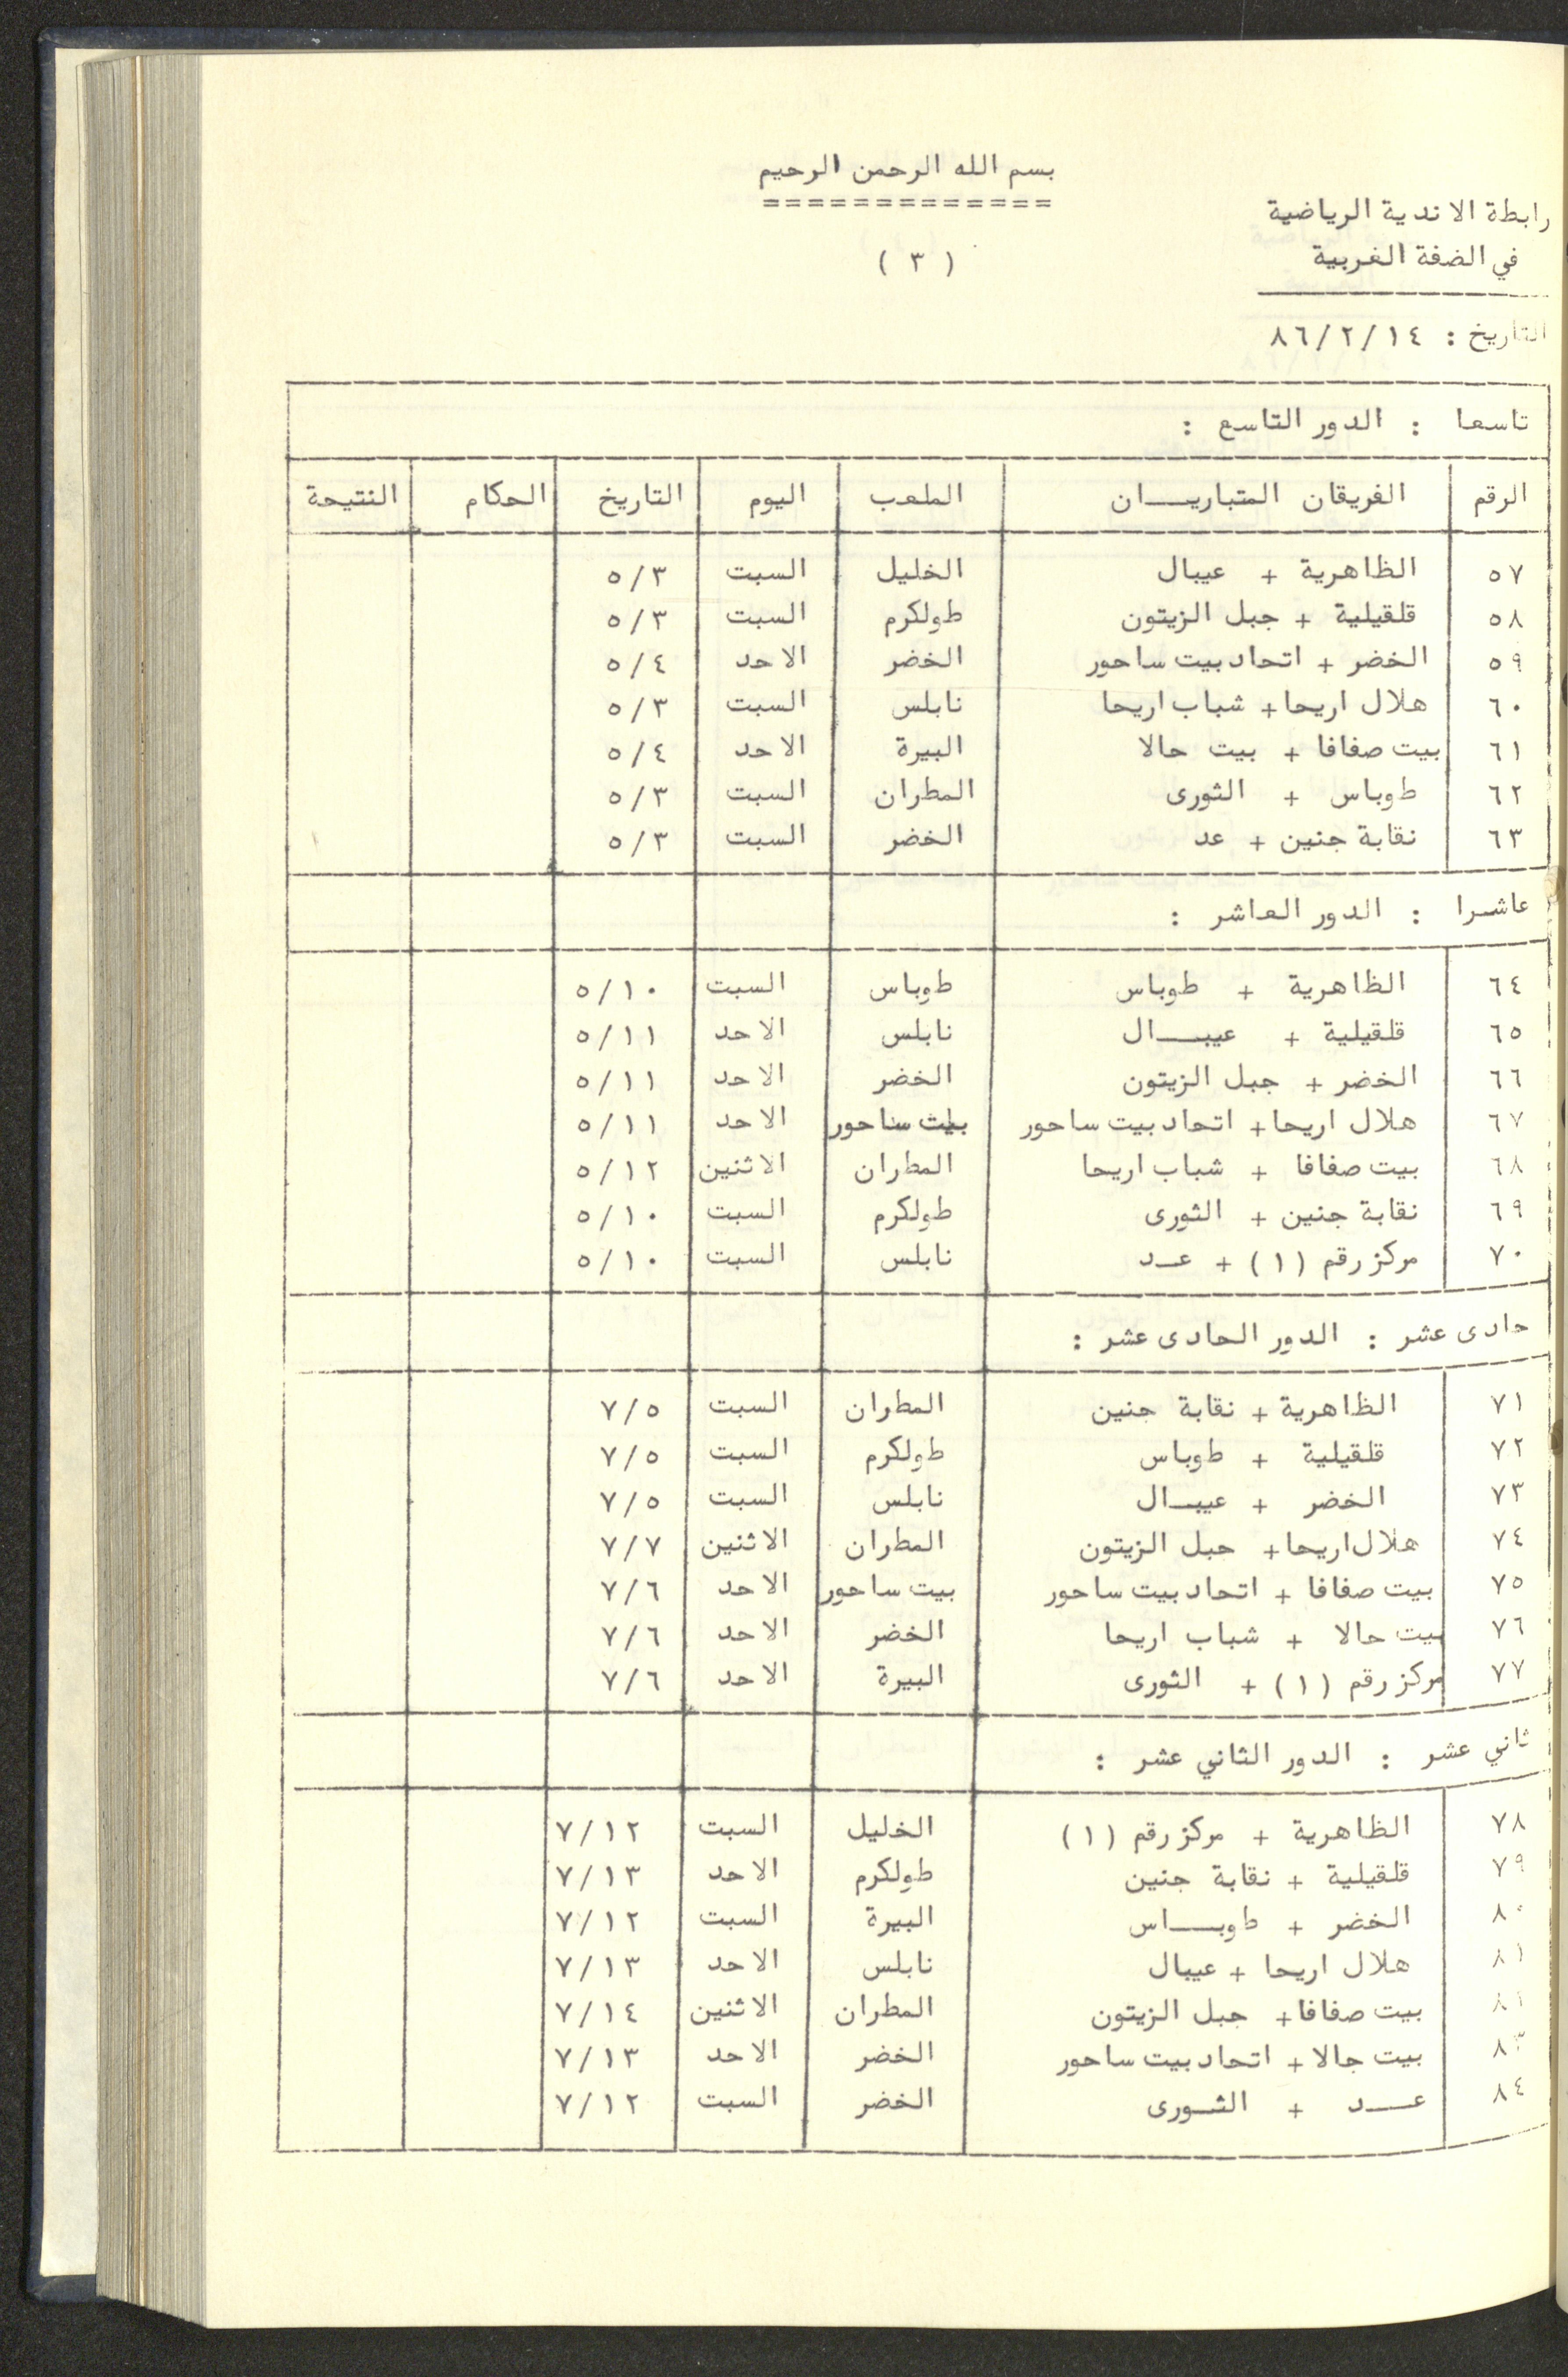 بسم الله الرحمن الرحيم
=============
رابطة الاندية الرياضية
في الضفة الغربية
( ٣ )
التاريخ : ٨٦/٢/١٤
تاسعا : الدور التاسع :
الرقم الفريقان المتباريـــان الملعب اليوم التاريخ الحكام النتيجة
٥٧ الظاهرية + عيبال الخليل السبت ٥/٣
٥٨ قلقيلية + جبل الزيتون طولكرم السبت ٥/٣
٥٩ الخضر + اتحاد بيت ساحور الخضر الاحد ٥/٤
٦٠ هلال اريحا + شباب اريحا نابلس السبت ٥/٣
٦١ بيت صفافا + بيت جالا البيرة الاحد ٥/٤
٦٢ طوباس + الثورى المطران السبت ٥/٣
٦٣ نقابة جنين + عد الخضر السبت ٥/٣
عاشرا : الدور العاشر :
٦٤ الظاهرية + طوباس طوباس السبت ٥/١٠
٦٥ قلقيلية + عيبـــال نابلس الاحد ٥/١١
٦٦ الخضر + جبل الزيتون الخضر الاحد ٥/١١
٦٧ هلال اريحا + اتحاد بيت ساحور بيت ساحور الاحد ٥/١١
٦٨ بيت صفافا + شباب اريحا المطران الاثنين ٥/١٢
٦٩ نقابة جنين + الثورى طولكرم السبت ٥/١٠
٧٠ مركز رقم (١) + عـد نابلس السبت ٥/١٠
حادى عشر : الدور الحادى عشر :
٧١ الظاهرية + نقابة جنين المطران السبت ٧/٥
٧٢ قلقيلية + طوباس طولكرم السبت ٧/٥
٧٣ الخضر + عيبـال نابلس السبت ٧/٥
٧٤ هلال اريحا + جبل الزيتون المطران الاثنين ٧/٧
٧٥ بيت صفافا + اتحاد بيت ساحور بيت ساحور الاحد ٧/٦
٧٦ بيت جالا + شباب اريحا الخضر الاحد ٧/٦
٧٧ مركز رقم (١) + الثورى البيرة الاحد ٧/٦
ثاني عشر : الدور الثاني عشر :
٧٨ الظاهرية + مركز رقم (١) الخليل السبت ٧/١٢
٧٩ قلقيلية + نقابة جنين طولكرم الاحد ٧/١٣
٨٠ الخضر + طوبـــاس البيرة السبت ٧/١٢
٨١ هلال اريحا + عيبال نابلس الاحد ٧/١٣
بيت صفافا + جبل الزيتون المطران الاثنين ٧/١٤
٨٣ بيت جالا + اتحاد بيت ساحور الخضر الاحد ٧/١٣
٨٤ عـــد + الثـورى الخضر السبت ٧/١٢